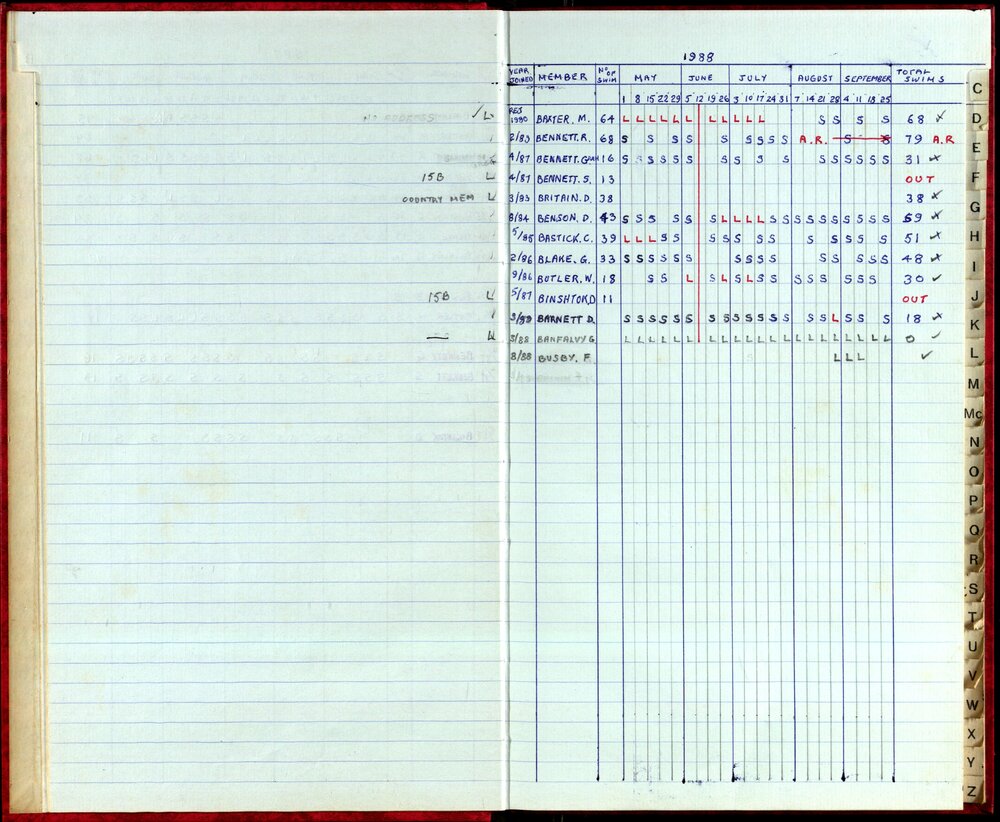 1988
YEAR JOINED MEMBER No OF SWIM MAY JUNE JULY AUGUST SEPTEMBER TOTAL SWIMS
1 8 15 22 29 5 12 19 26 3 10 17 24 31 7 14 21 28 4 11 18 25
NO ADDRESS / L REJ 1980 BAXTER, M. 64 L L L L L L L L L L L S S S S 68
2/83 BENNETT. R. 68 S S S S S S S S S A.R S S 79 A.R
4/87 BENNETT. GRAH 16 S S S S S S S S S S S S S S S S 31
15B L 4/87 BENNETT. S. 13 OUT
COUNTRY MEM L 3/83 BRITAIN. D. 38 38
8/84 BENSON. D. 43 S S S S S S L L L L S S S S S S S S S S 59
5/85 BASTICK. C. 39 L L L S S S S S S S S S S S S 51
2/86 BLAKE. G. 33 S S S S S S S S S S S S S S S 48
9/86 BUTLER. W. 18 S S L S L S L S S S S S S S S 30
15B L 5/87 BINSHTOK D 11 OUT
3/88 BARNETT D. S S S S S S S S S S S S S S S S L S S S 18
L 3/88 BANFALVY G L L L L L L L L L L L L L L L L L L L L L 0
8/88 BUSBY. F. L L L
C
D
E
F
G
H
I
J
K
L
M
Mc
N
O
P
Q
R
S
T
U
V
W
X
Y
Z